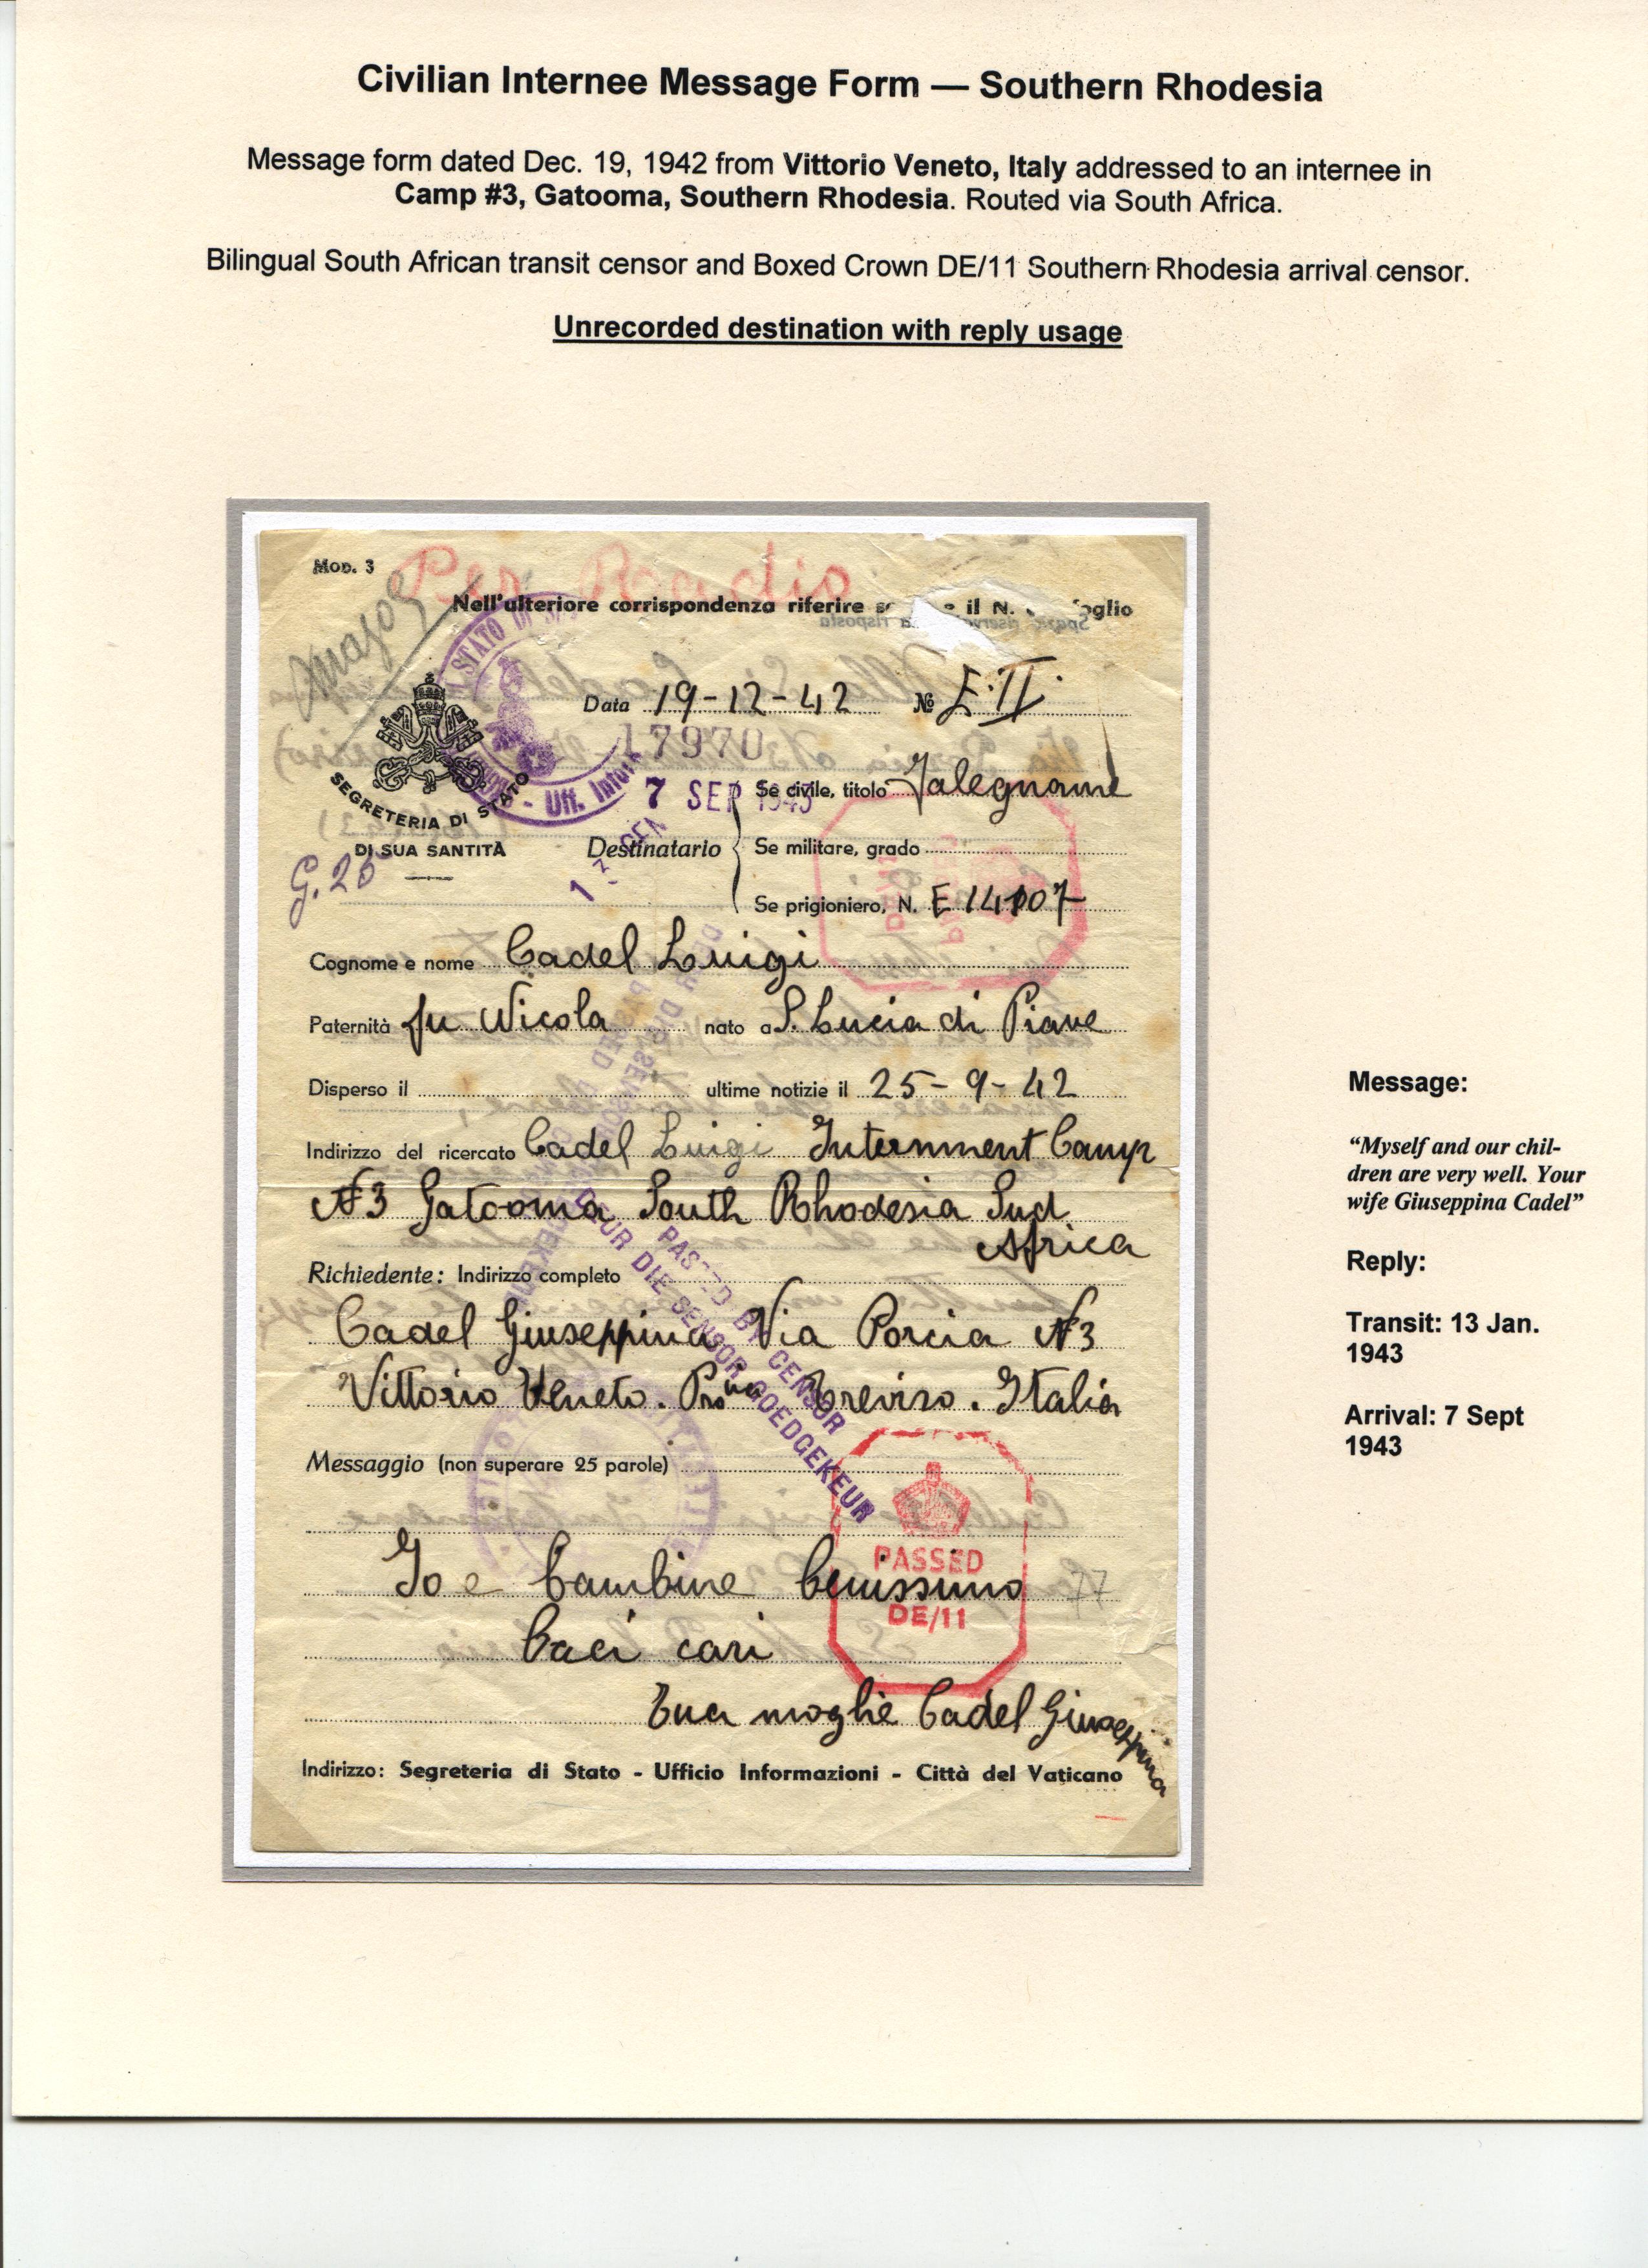 Civilian Internee Message Form — Southern Rhodesia
Message form dated Dec. 19, 1942 from Vittorio Veneto, Italy addressed to an internee in
Camp #3, Gatooma, Southern Rhodesia. Routed via South Africa.
Bilingual South African transit censor and Boxed Crown DE/11 Southern Rhodesia arrival censor.
Unrecorded destination with reply usage
Mod. 3
Per Radio
Nell'ulteriore corrispondenza riferire il N. foglio
Data 19-12-42 № E.II.
17970
SEGRETERIA DI STATO
DI SUA SANTITÀ
STATO DI
Uff. Inform
7 SEP 1943
13 GEN
G. 26
Se civile, titolo Falegname
Destinatario
Se militare, grado
Se prigioniero, N. E 14107
Cognome e nome Cadel Luigi
Paternità fu Nicola nato a S. Lucia di Piave
Disperso il ultime notizie il 25-9-42
Indirizzo del ricercato Cadel Luigi Internment Camp
N3 Gatooma South Rhodesia Sud
Africa
Richiedente: Indirizzo completo
Cadel Giuseppina Via Porcia N3
Vittorio Veneto. Provia Treviso. Italia
PASSED BY CENSOR
DEUR DIE SENSOR GOEDGEKEUR
Messaggio (non superare 25 parole)
Io e bambine benissimo 77
baci cari
tua moglie Cadel Giuseppina
PASSED
DE/11
Indirizzo: Segreteria di Stato - Ufficio Informazioni - Città del Vaticano
Message:
“Myself and our chil-
dren are very well. Your
wife Giuseppina Cadel”
Reply:
Transit: 13 Jan.
1943
Arrival: 7 Sept
1943